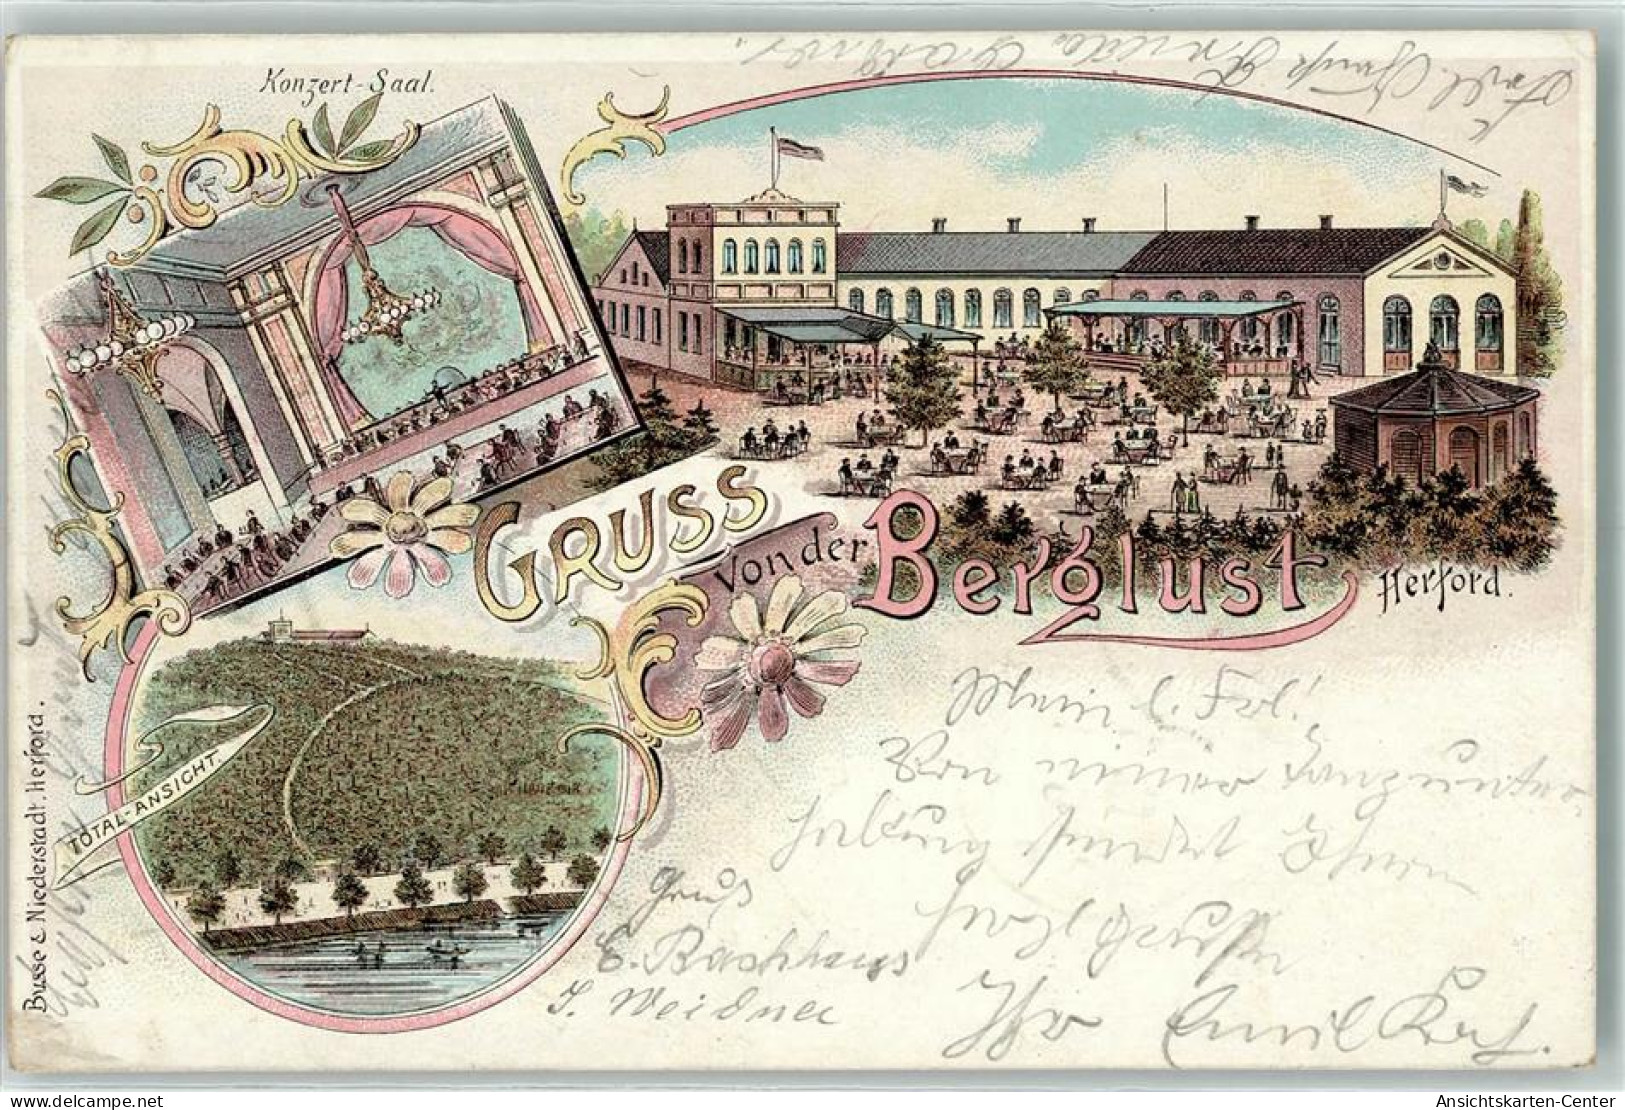 Konzert-Saal.
GRUSS
von der
Berglust
Herford.
TOTAL-ANSICHT.
Busse & Niederstadt. Herford.
Mein l. Frl.!
Von einer Tanzunter-
haltung sendet Ihnen
herzl Grüße
Ihr Emil
Gruß
E. Rashhaus
S. Weidner
delcampe.net
Ansichtskarten-Center